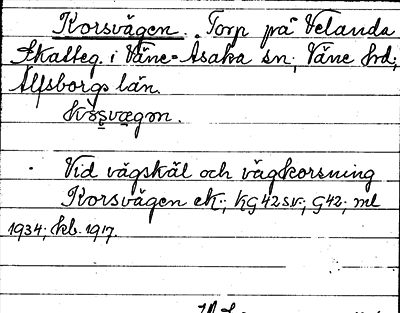 Korsvägen. Torp på Velanda
Skatteg. i Väne-Åsaka sn; Väne hd;
Älfsborgs län.
kǫsvægən.
Vid vägskäl och vägkorsning
Korsvägen ek.; KG42sv.; G42; ml
1934; kb. 1917.